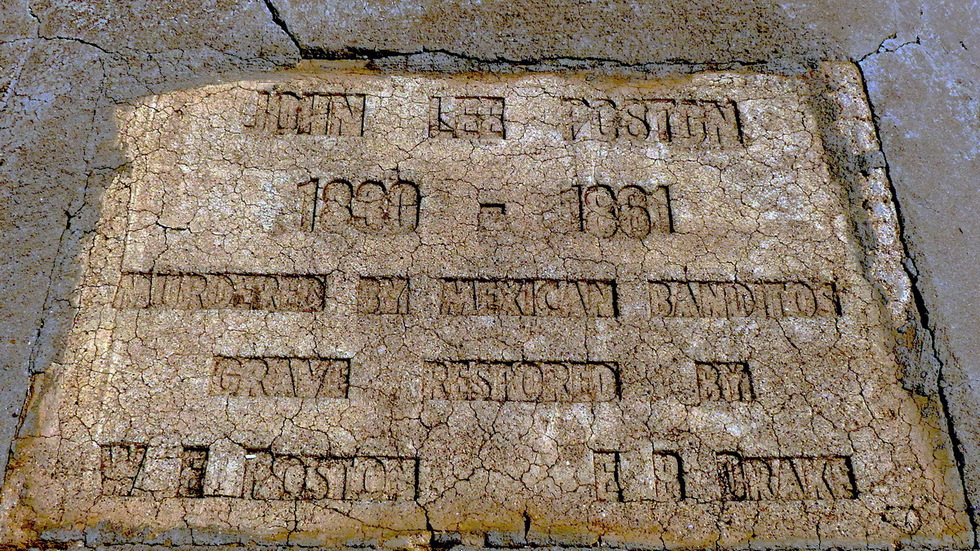 JOHN LEE POSTON
1830 - 1861
MURDERED BY MEXICAN BANDITOS
GRAVE RESTORED BY
POSTON E R DRAKE